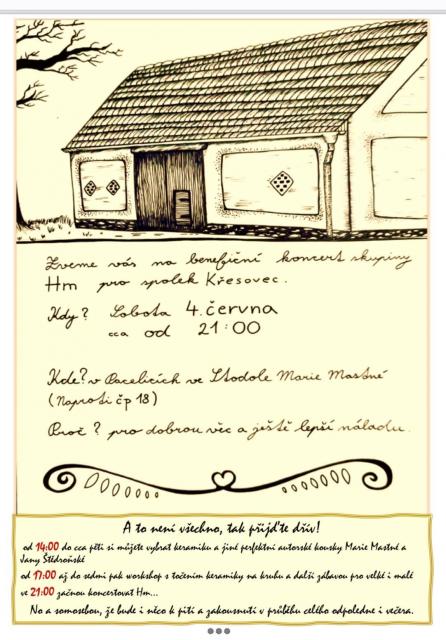 Zveme vás na benefiční koncert skupiny
Hm pro spolek Křesovec.
Kdy? Sobota 4. června
cca od 21:00
Kde? v Pacelicích ve Stodole Marie Mastné
(Naproti čp 18)
Proč? pro dobrou věc a ještě lepší náladu.
A to není všechno, tak přijďte dřív!
od 14:00 do cca pěti si můžete vybrat keramiku a jiné perfektní autorské kousky Marie Mastné a
Jany Štědroňské
od 17:00 až do sedmi pak workshop s točením keramiky na kruhu a další zábavou pro velké i malé
ve 21:00 začnou koncertovat Hm...
No a samosebou, že bude i něco k pití a zakousnutí v průběhu celého odpoledne i večera.